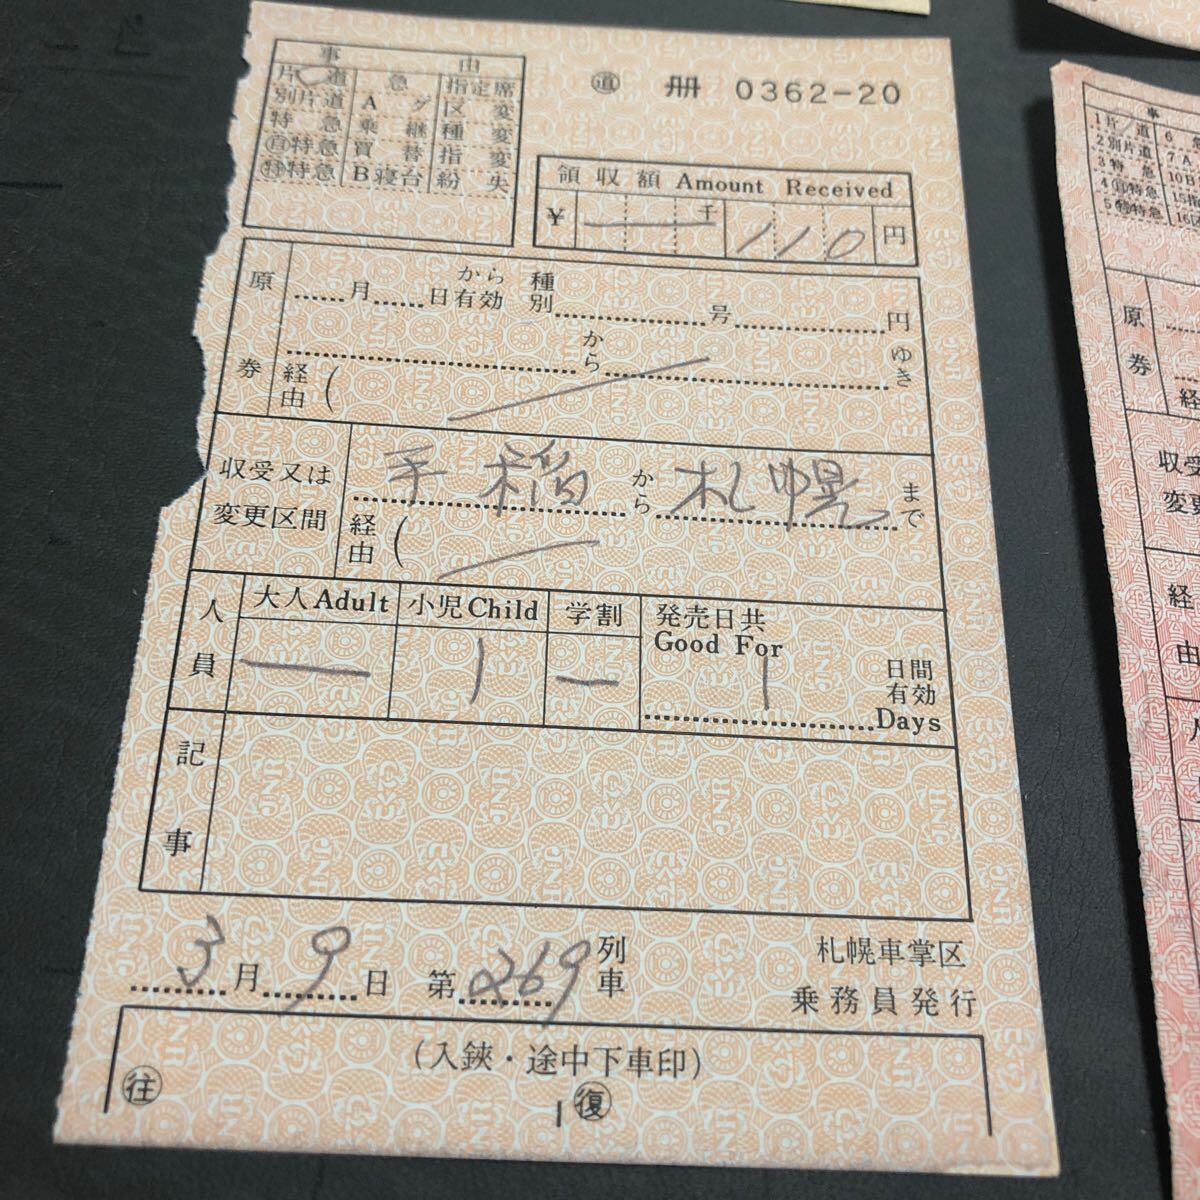 ㊞ 冊 0362-20
事 由
片道 急 指定席
別片道 A ダ 区 変
特急 乗継 種 変
㊐特急 買替 指 変
㊕特急 B寝台 紛 失
領収額 Amount Received
¥ ― 千 110 円
原券
月 日有効 から 種別 号 円
から ゆき
経由(
収受又は変更区間
手稲 から 札幌 まで
経由(
人員
大人Adult 小児Child 学割 発売日共 Good For
― 1 ― 1 日間有効 Days
記事
3月9日 第269列車
札幌車掌区
乗務員発行
(入鋏・途中下車印)
往 復
事
1片道 6
2別片道 7A
3特急 10B
4㊐特急 15
5㊕特急 16
原券
経
収受
変更
経由